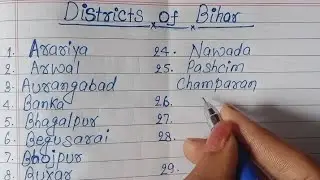 Districts of Bihar
1. Arariya
2. Arwal
3. Aurangabad
4. Banka
5. Bhagalpur
6. Begusarai
7. Bhojpur
8. Buxar
24. Nawada
25. Pashcim
Champaran
26.
27.
28.
29.